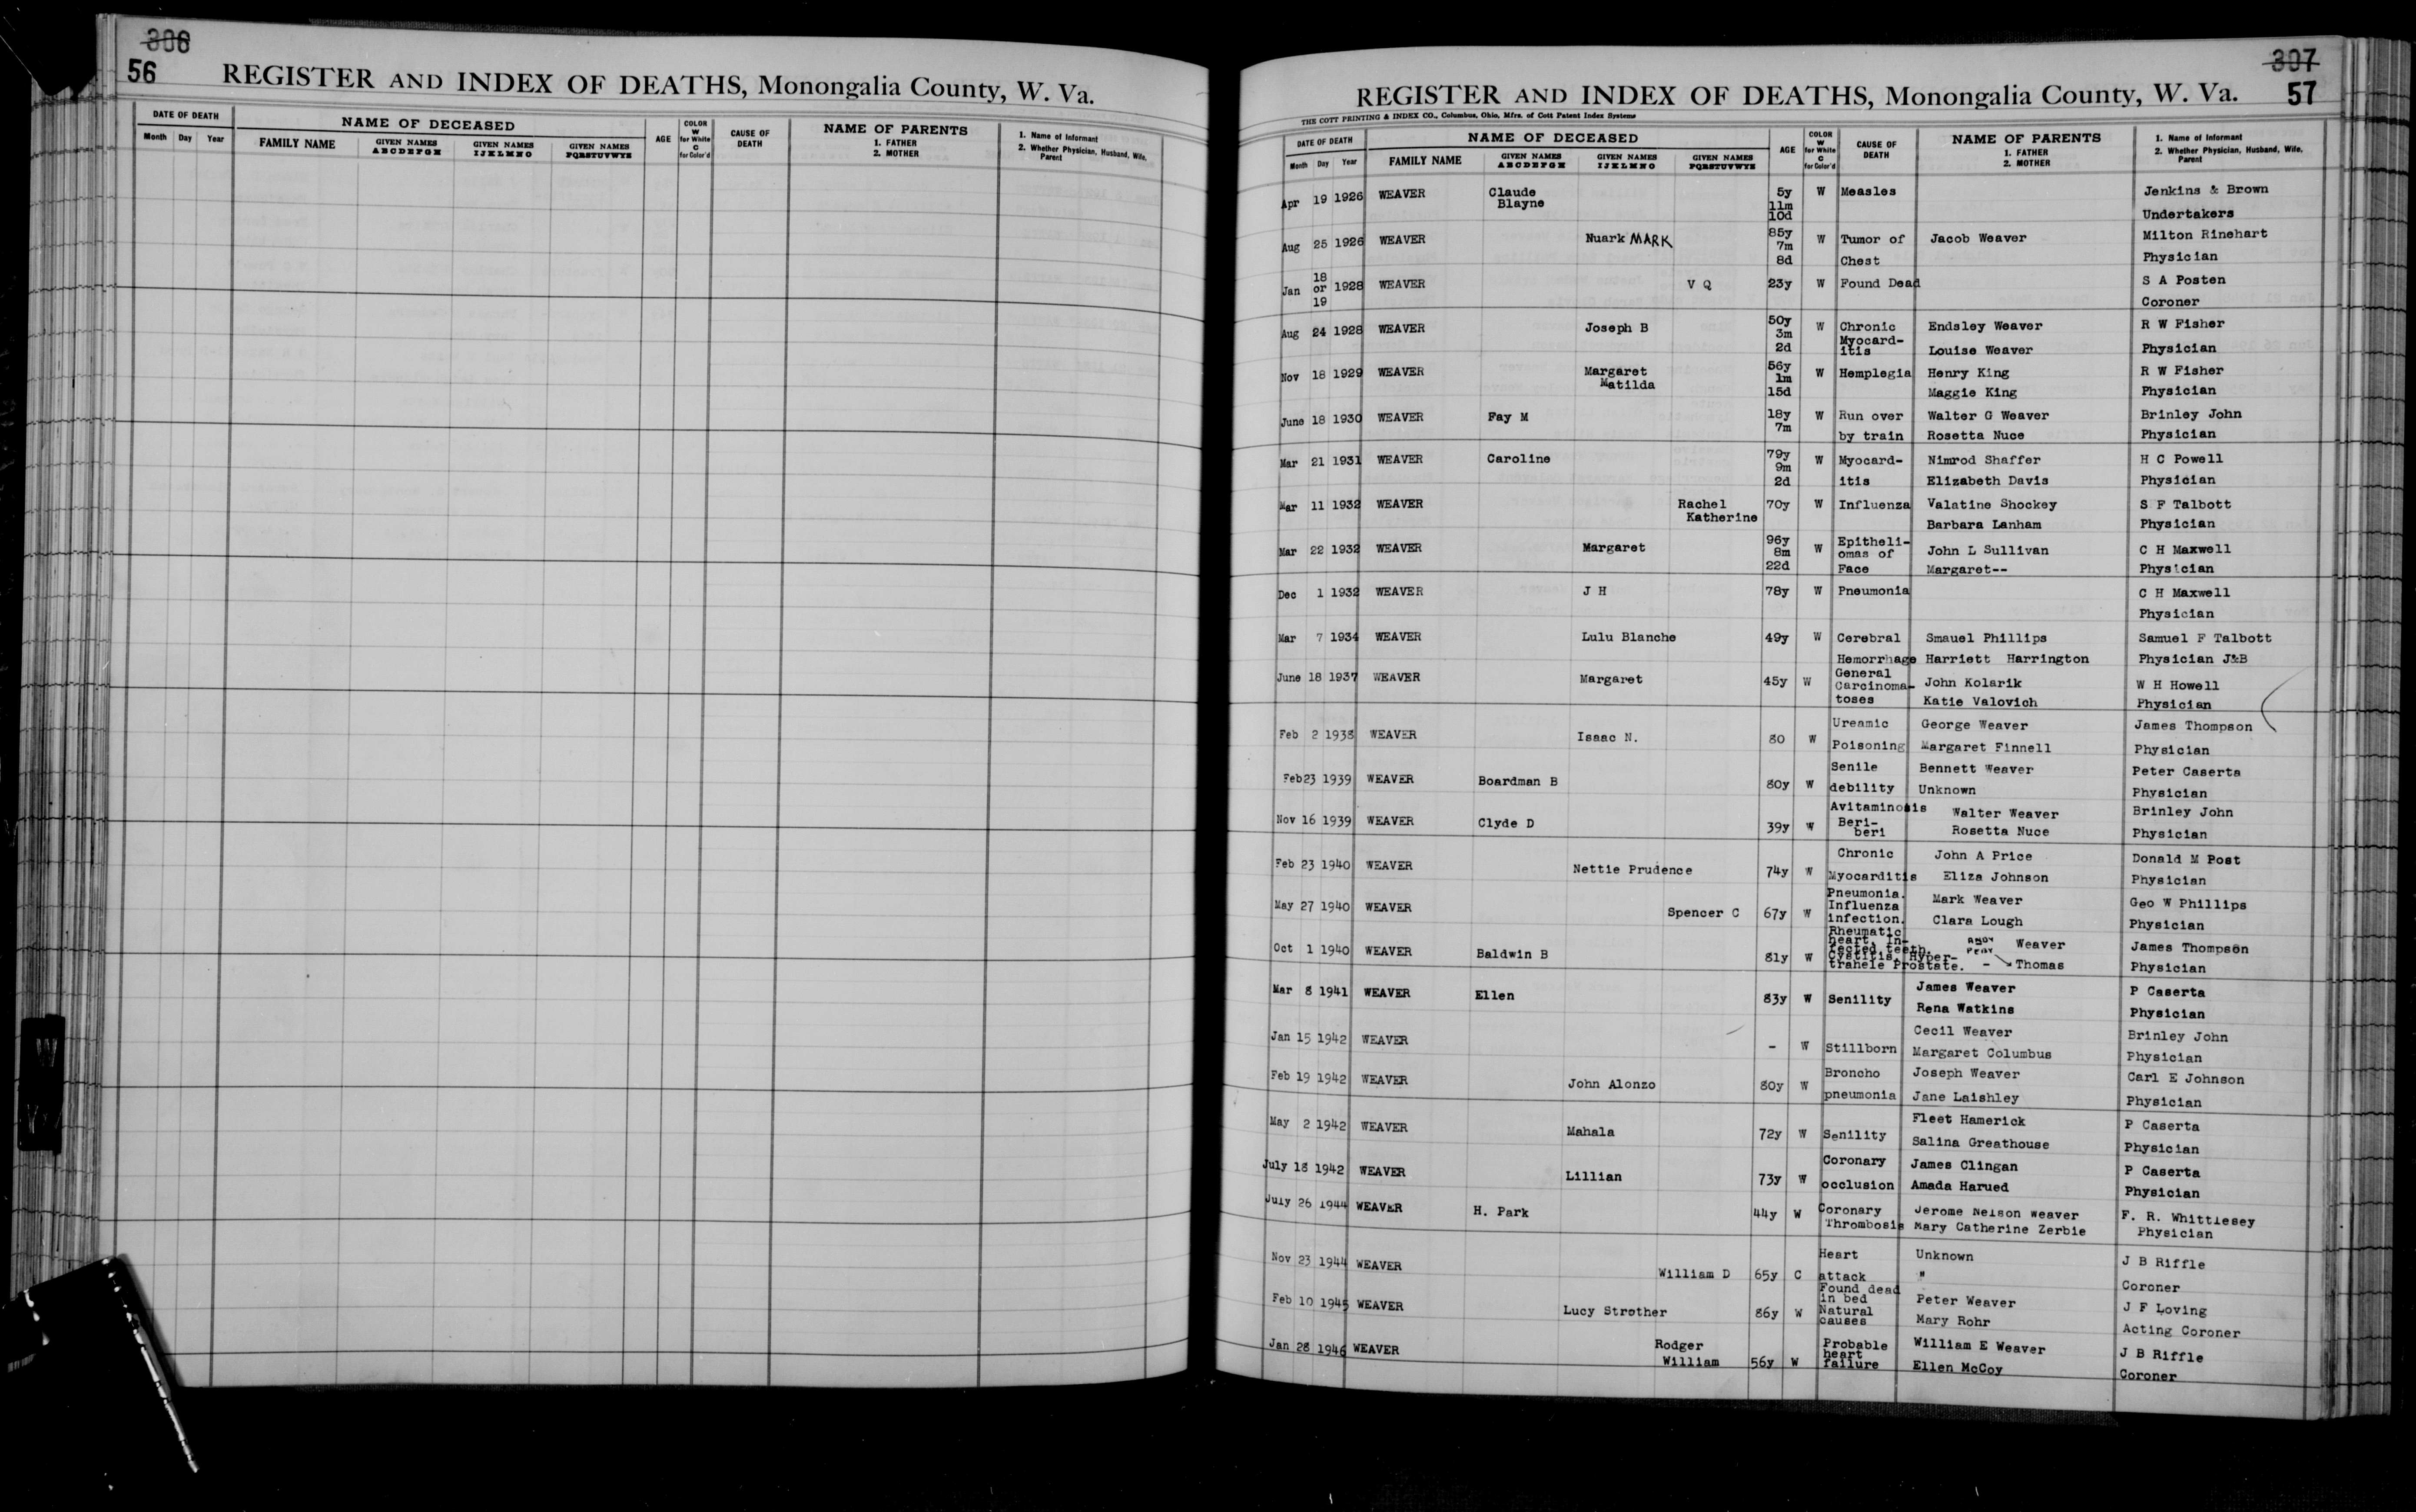 306
56
REGISTER AND INDEX OF DEATHS, Monongalia County, W. Va.
DATE OF DEATH
Month Day Year
NAME OF DECEASED
FAMILY NAME
GIVEN NAMES
ABCDEFGH
GIVEN NAMES
IJKLMNO
GIVEN NAMES
PQRSTUVWYZ
AGE
COLOR
W
for White
C
for Color'd
CAUSE OF
DEATH
NAME OF PARENTS
1. FATHER
2. MOTHER
1. Name of Informant
2. Whether Physician, Husband, Wife,
Parent
307
57
REGISTER AND INDEX OF DEATHS, Monongalia County, W. Va.
THE COTT PRINTING & INDEX CO., Columbus, Ohio, Mfrs. of Cott Patent Index Systems
DATE OF DEATH
Month Day Year
NAME OF DECEASED
FAMILY NAME
GIVEN NAMES
ABCDEFGH
GIVEN NAMES
IJKLMNO
GIVEN NAMES
PQRSTUVWYZ
AGE
COLOR
W
for White
C
for Color'd
CAUSE OF
DEATH
NAME OF PARENTS
1. FATHER
2. MOTHER
1. Name of Informant
2. Whether Physician, Husband, Wife,
Parent
Apr 19 1926 WEAVER Claude 5y W Measles Jenkins & Brown
Blayne 11m
10d Undertakers
Aug 25 1926 WEAVER Nuark MARK 85y W Tumor of Jacob Weaver Milton Rinehart
7m
8d Chest Physician
Jan 18 or 19 1928 WEAVER V Q 23y W Found Dead S A Posten
Coroner
Aug 24 1928 WEAVER Joseph B 50y W Chronic Endsley Weaver R W Fisher
3m Myocard-
2d itis Louise Weaver Physician
Nov 18 1929 WEAVER Margaret 56y W Hemplegia Henry King R W Fisher
Matilda 1m
15d Maggie King Physician
June 18 1930 WEAVER Fay M 18y W Run over Walter G Weaver Brinley John
7m by train Rosetta Nuce Physician
Mar 21 1931 WEAVER Caroline 79y W Myocard- Nimrod Shaffer H C Powell
9m
2d itis Elizabeth Davis Physician
Mar 11 1932 WEAVER Rachel 70y W Influenza Valatine Shockey S F Talbott
Katherine Barbara Lanham Physician
Mar 22 1932 WEAVER Margaret 96y W Epitheli- John L Sullivan C H Maxwell
8m omas of
22d Face Margaret-- Physician
Dec 1 1932 WEAVER J H 78y W Pneumonia C H Maxwell
Physician
Mar 7 1934 WEAVER Lulu Blanche 49y W Cerebral Smauel Phillips Samuel F Talbott
Hemorrhage Harriett Harrington Physician J&B
June 18 1937 WEAVER Margaret 45y W General
Carcinoma- John Kolarik W H Howell
toses Katie Valovich Physician
Feb 2 1938 WEAVER Isaac N. 80 W Ureamic George Weaver James Thompson
Poisoning Margaret Finnell Physician
Feb 23 1939 WEAVER Boardman B 80y W Senile Bennett Weaver Peter Caserta
debility Unknown Physician
Nov 16 1939 WEAVER Clyde D 39y W Avitaminosis Walter Weaver Brinley John
Beri-
beri Rosetta Nuce Physician
Feb 23 1940 WEAVER Nettie Prudence 74y W Chronic John A Price Donald M Post
Myocarditis Eliza Johnson Physician
May 27 1940 WEAVER Spencer C 67y W Pneumonia. Mark Weaver Geo W Phillips
Influenza
infection. Clara Lough Physician
Oct 1 1940 WEAVER Baldwin B 81y W Rheumatic
heart, In- Weaver James Thompson
fected teeth,
Cystitis, Hyper-
trahele Prostate. - Thomas Physician
Mar 8 1941 WEAVER Ellen 83y W Senility James Weaver P Caserta
Rena Watkins Physician
Jan 15 1942 WEAVER - W Stillborn Cecil Weaver Brinley John
Margaret Columbus Physician
Feb 19 1942 WEAVER John Alonzo 80y W Broncho Joseph Weaver Carl E Johnson
pneumonia Jane Laishley Physician
May 2 1942 WEAVER Mahala 72y W Senility Fleet Hamerick P Caserta
Salina Greathouse Physician
July 18 1942 WEAVER Lillian 73y W Coronary James Clingan P Caserta
occlusion Amada Harued Physician
July 26 1944 WEAVER H. Park 44y W Coronary Jerome Nelson Weaver F. R. Whittlesey
Thrombosis Mary Catherine Zerbie Physician
Nov 23 1944 WEAVER William D 65y C Heart Unknown J B Riffle
attack " Coroner
Feb 10 1945 WEAVER Lucy Strother 86y W Found dead
in bed Peter Weaver J F Loving
Natural
causes Mary Rohr Acting Coroner
Jan 28 1946 WEAVER Rodger 56y W Probable William E Weaver J B Riffle
William heart
failure Ellen McCoy Coroner